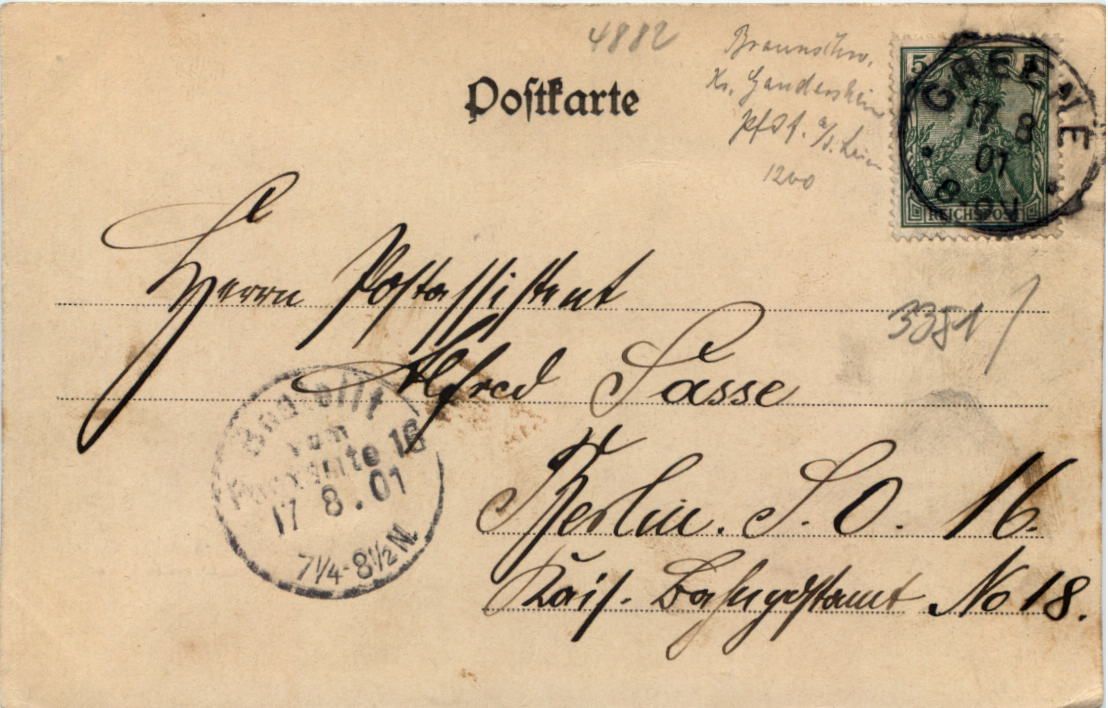 4882
Postkarte
Braunschw.
Kr. Gandersheim
1200
5
REICHSPOST
GREENE
17 8
01
8-9V
3381
Herrn Postassistent
Alfred Sasse
Berlin. S. O. 16.
Kais. Bahnpostamt No 18.
Bestellt
vom
Postamte 16
17 8.01
7¼-8½N.